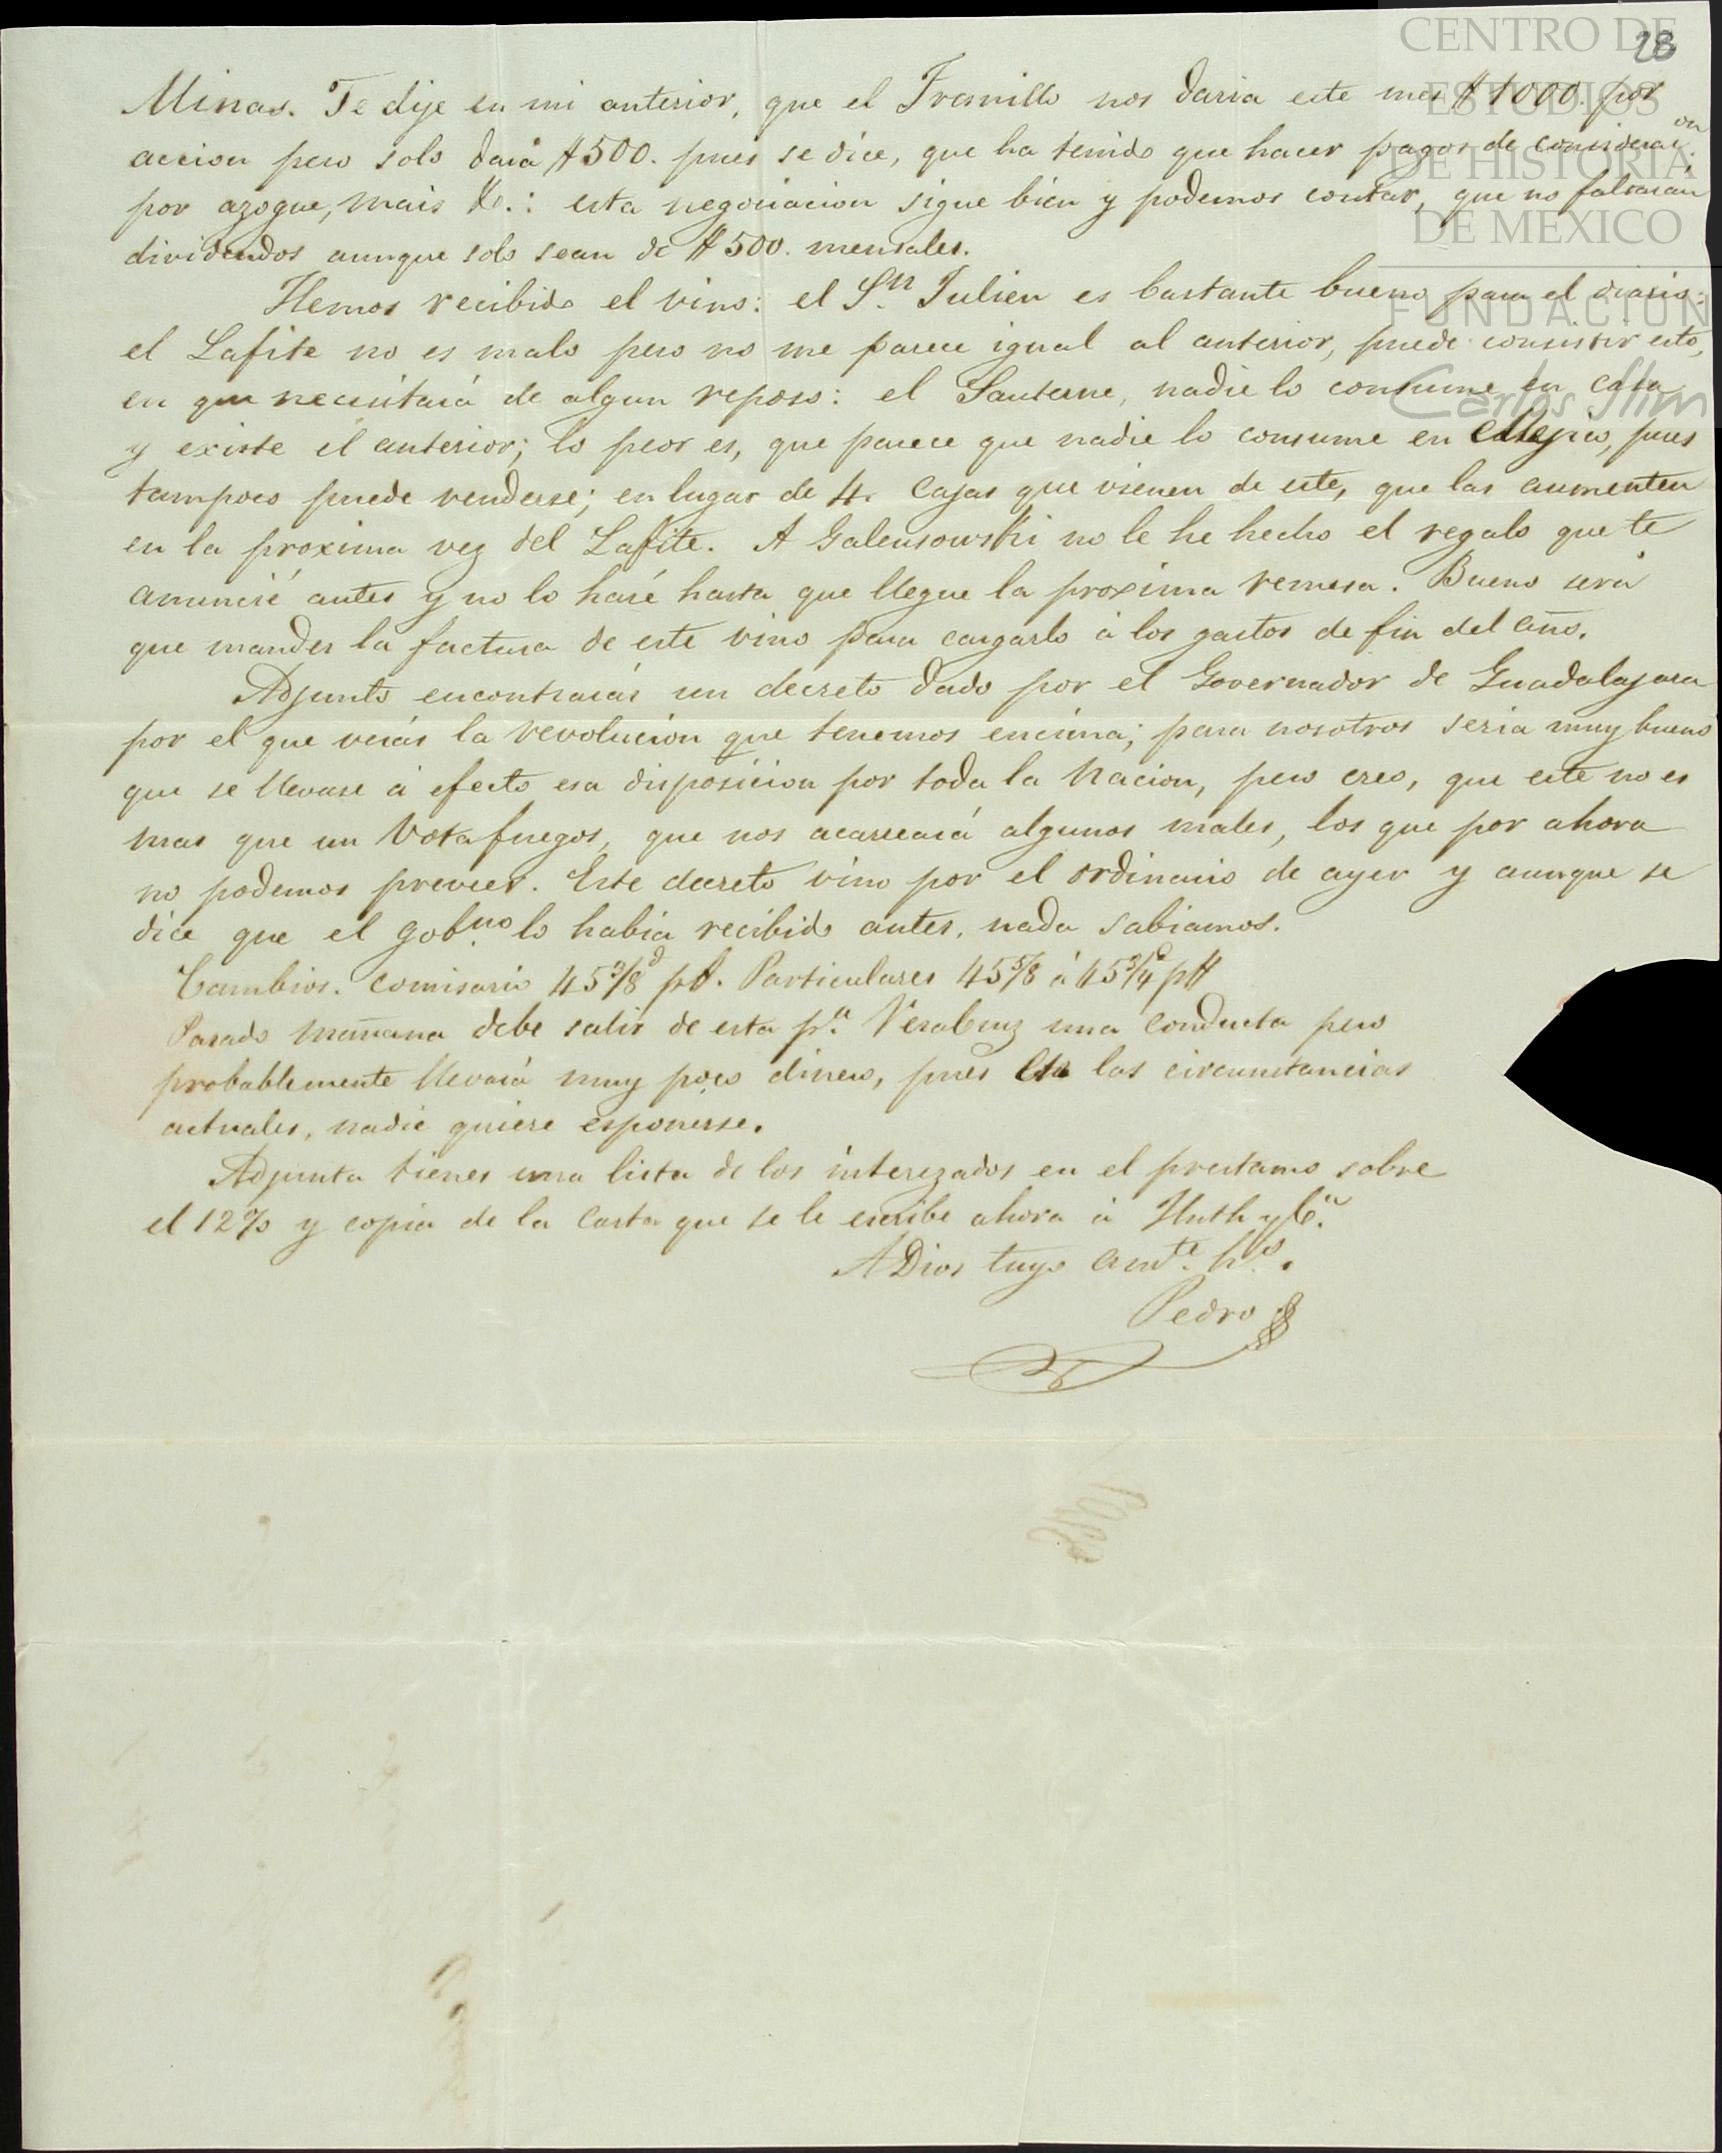 CENTRO DE
ESTUDIOS
DE HISTORIA
DE MEXICO
FUNDACION
Carlos Slim
28
Minas. Te dije en mi anterior, que el Fresnillo nos daria este mes $1000. por
accion pero solo dará $500. pues se dice, que ha tenido que hacer pagos de considerac.on
por azogue, mais &c.: esta negociacion sigue bien y podemos contar, que no faltaran
dividendos aunque solo sean de $500. mensales.
Hemos recibido el vino: el S.n Julien es bastante bueno para el diario:
el Lafite no es malo pero no me parece igual al anterior, puede consistir esto,
en que necesitará de algun reposo: el Sauterne, nadie lo consume en casa
y existe el anterior; lo peor es, que parece que nadie lo consume en Mejico, pues
tampoco puede venderse; en lugar de 4. Cajas que vienen de este, que las aumenten
en la proxima vez del Lafite. A Galensowski no le he hecho el regalo que te
anuncié antes y no lo haré hasta que llegue la proxima remesa. Bueno será
que mandes la factura de este vino para cargarlo á los gastos de fin del año.
Adjunto encontrarás un decreto dado por el Governador de Guadalajara
por el que verás la revolucion que tenemos encima; para nosotros seria muy bueno
que se llevase á efecto esa disposicion por toda la Nacion, pero creo, que este no es
mas que un Votafuegos, que nos acarreará algunos males, los que por ahora
no podemos preveer. Este decreto vino por el ordinario de ayer y aunque se
dice que el gob.no lo habia recibido antes, nada sabiamos.
Cambios. Comisario 45 3/8 d p$. Particulares 45 5/8 á 45 3/4 d p$
Pasado mañana debe salir de esta p.a Veracruz una Conducta pero
probablemente llevará muy poco dinero, pues en las circunstancias
actuales, nadie quiere esponerse.
Adjunta tienes una lista de los interezados en el prestamo sobre
el 12% y copia de la Carta que se le escribe ahora á Huth y C.a
A Dios tuyo am.te h.o.
Pedro